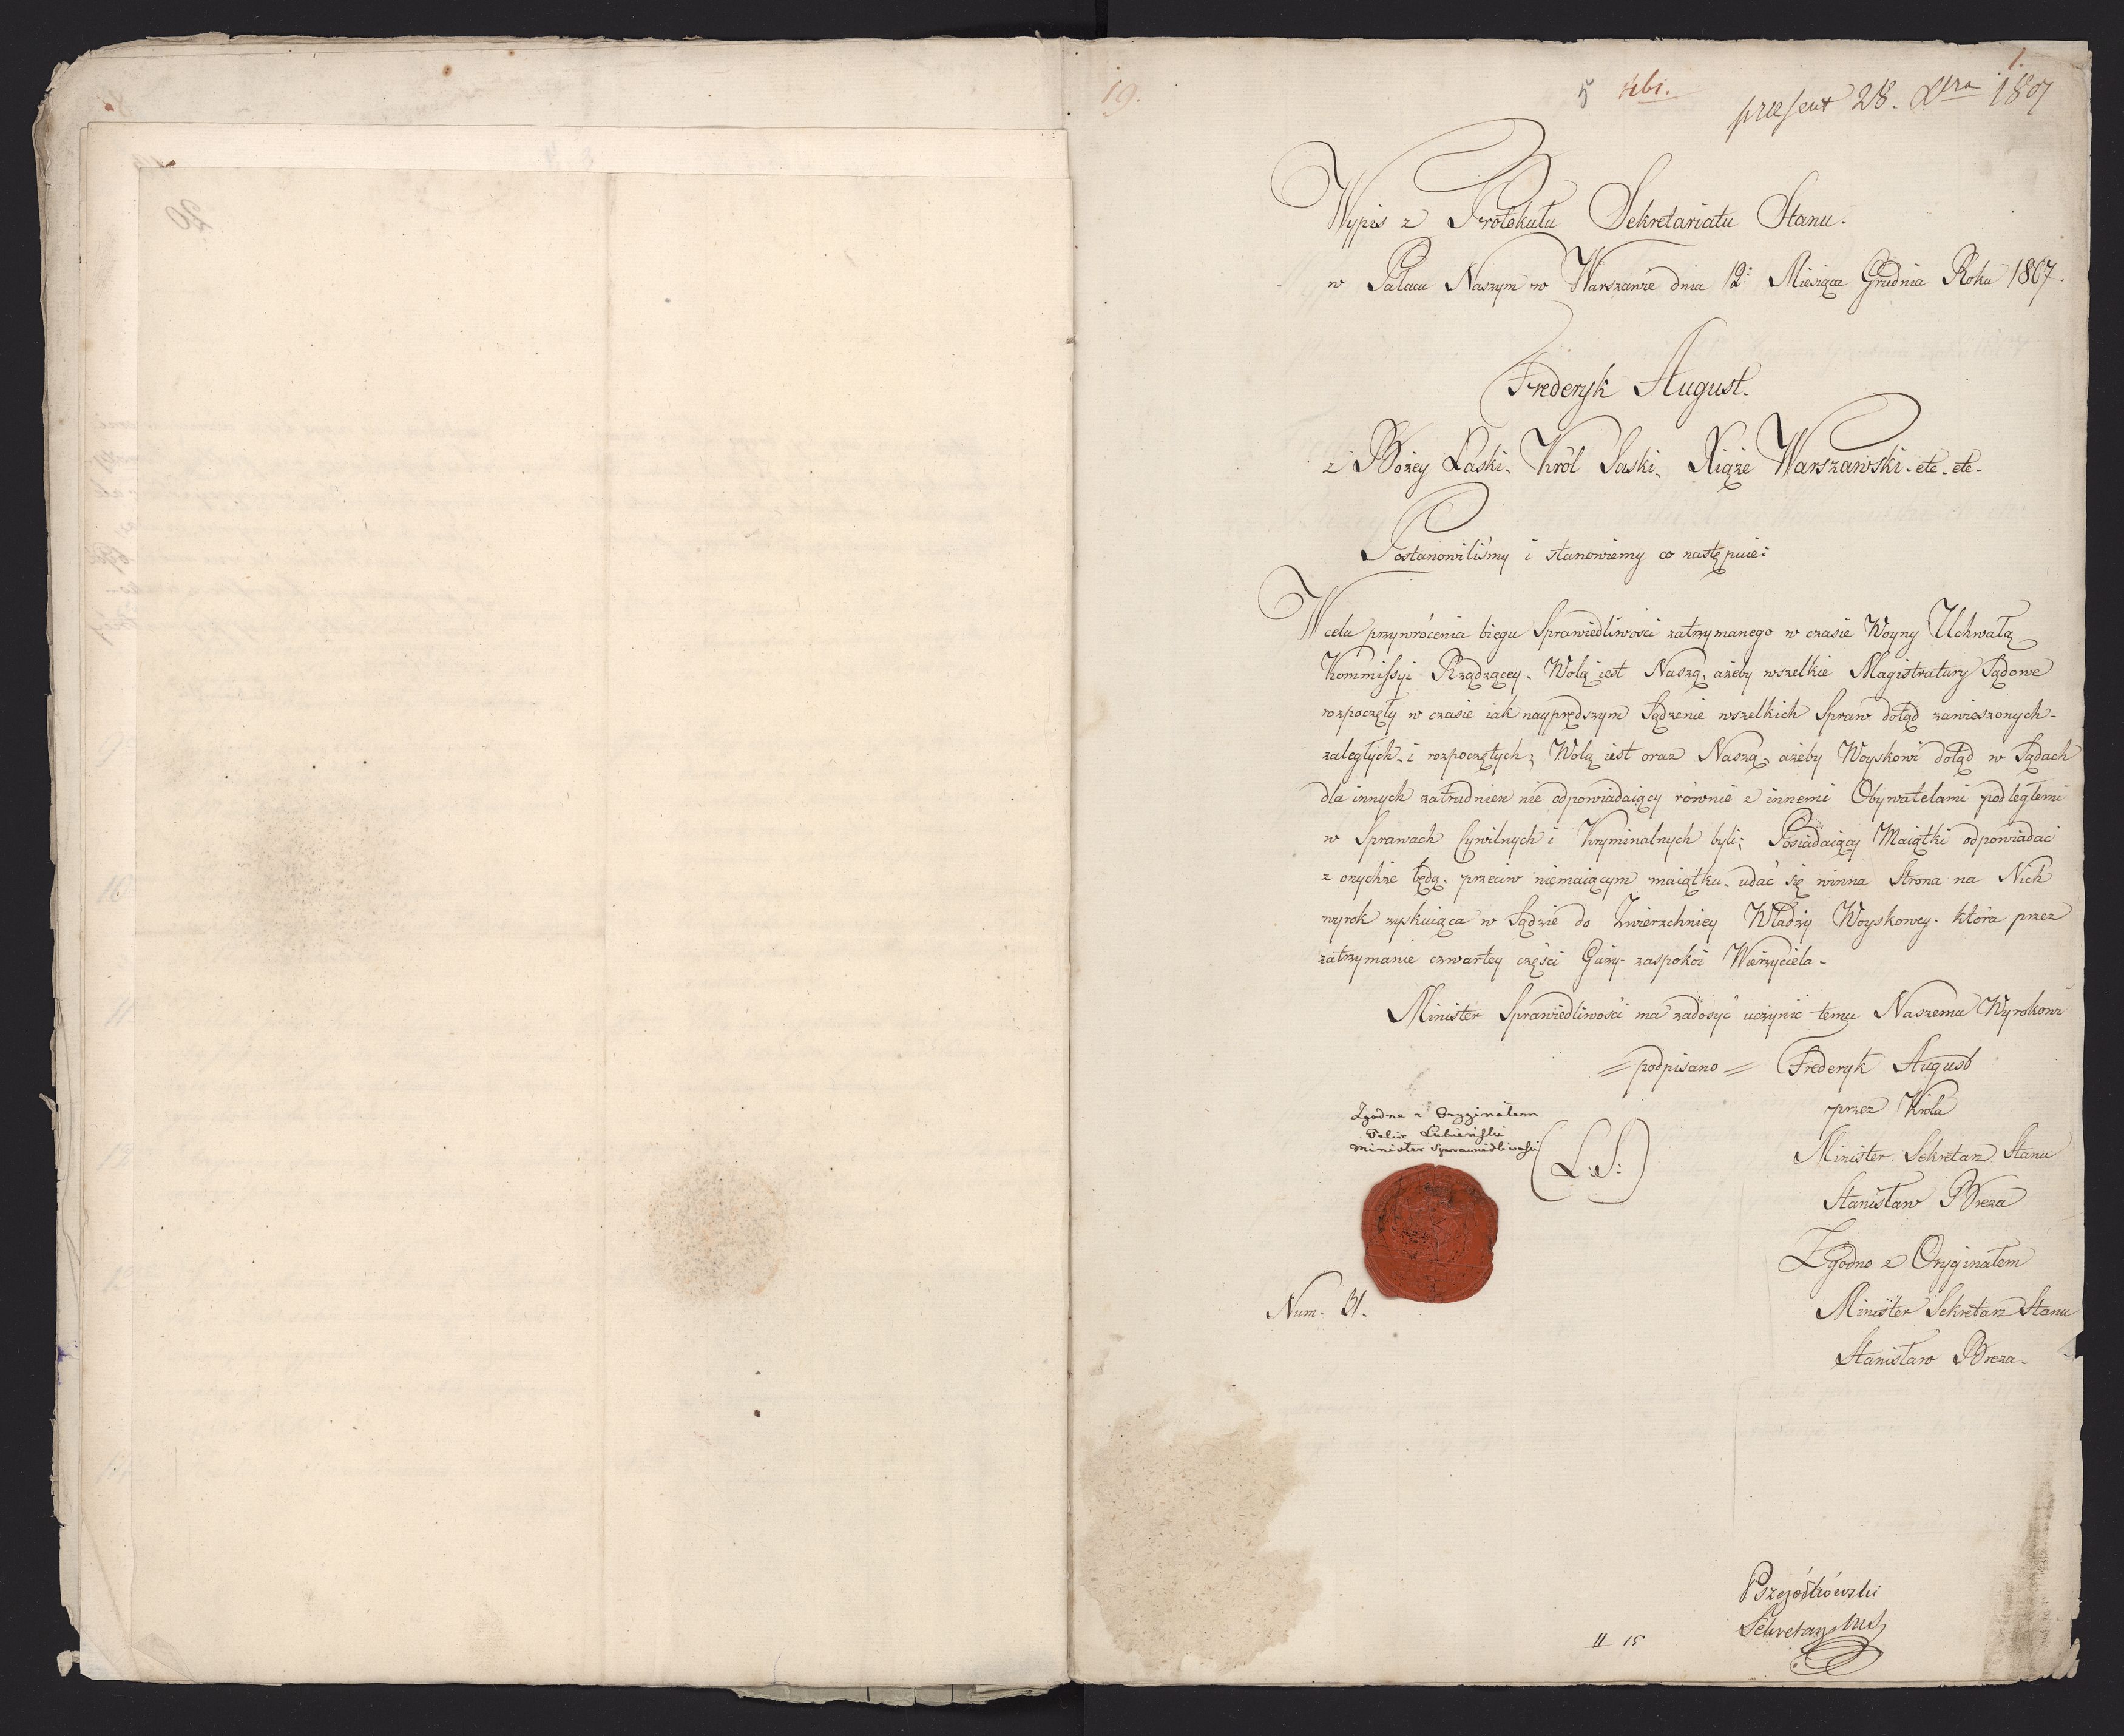 20
19.
5
1.
præsent 28. Xbra 1807
Wypis z Protokułu Sekretariatu Stanu.
w Pałacu Naszym w Warszawie dnia 12: Miesiąca Grudnia Roku 1807.
Frederyk August.
z Bożey Łaski. Król Saski, Xiąże Warszawski. etc. etc.
Postanowiliśmy i stanowiemy co następuie:
W celu przywrócenia biegu Sprawiedliwości zatrzymanego w czasie Woyny Uchwałą
Kommissyi Rządzącey. Wolą iest Naszą, ażeby wszelkie Magistratury Sądowe
rozpoczęły w czasie iak nayprędszym Sądzenie wszelkich Spraw dotąd zawieszonych.
zaległych. i rozpoczętych; Wolą iest oraz Naszą, ażeby Woyskowi dotąd w Sądach
dla innych zatrudnien nie odpowiadaiący równie z innemi Obywatelami podległemi
w Sprawach Cywilnych i Kryminalnych byli; Posiadaiący Maiątki odpowiadać
z onychże będą. przeciw niemaiącym maiątku. udać się winna Strona na Nich
wyrok zyskuiąca w Sądzie do Zwierzchniey Władzy Woyskowey. która przez
zatrzymanie czwartey części Gaży zaspokoi Wierzyciela.
Minister Sprawiedliwości ma zadosyć uczynić temu Naszemu Wyrokowi
= podpisano = Frederyk August
przez Króla
Minister Sekretarz Stanu
Stanisław Breza
Zgodno z Oryginałem
Minister Sekretarz Stanu
Stanisław Breza.
Zgodne z Oryginałem
Felix Łubieński
Minister Sprawiedliwości
(L.S:)
Num. 31.
Sekretarz
II 15